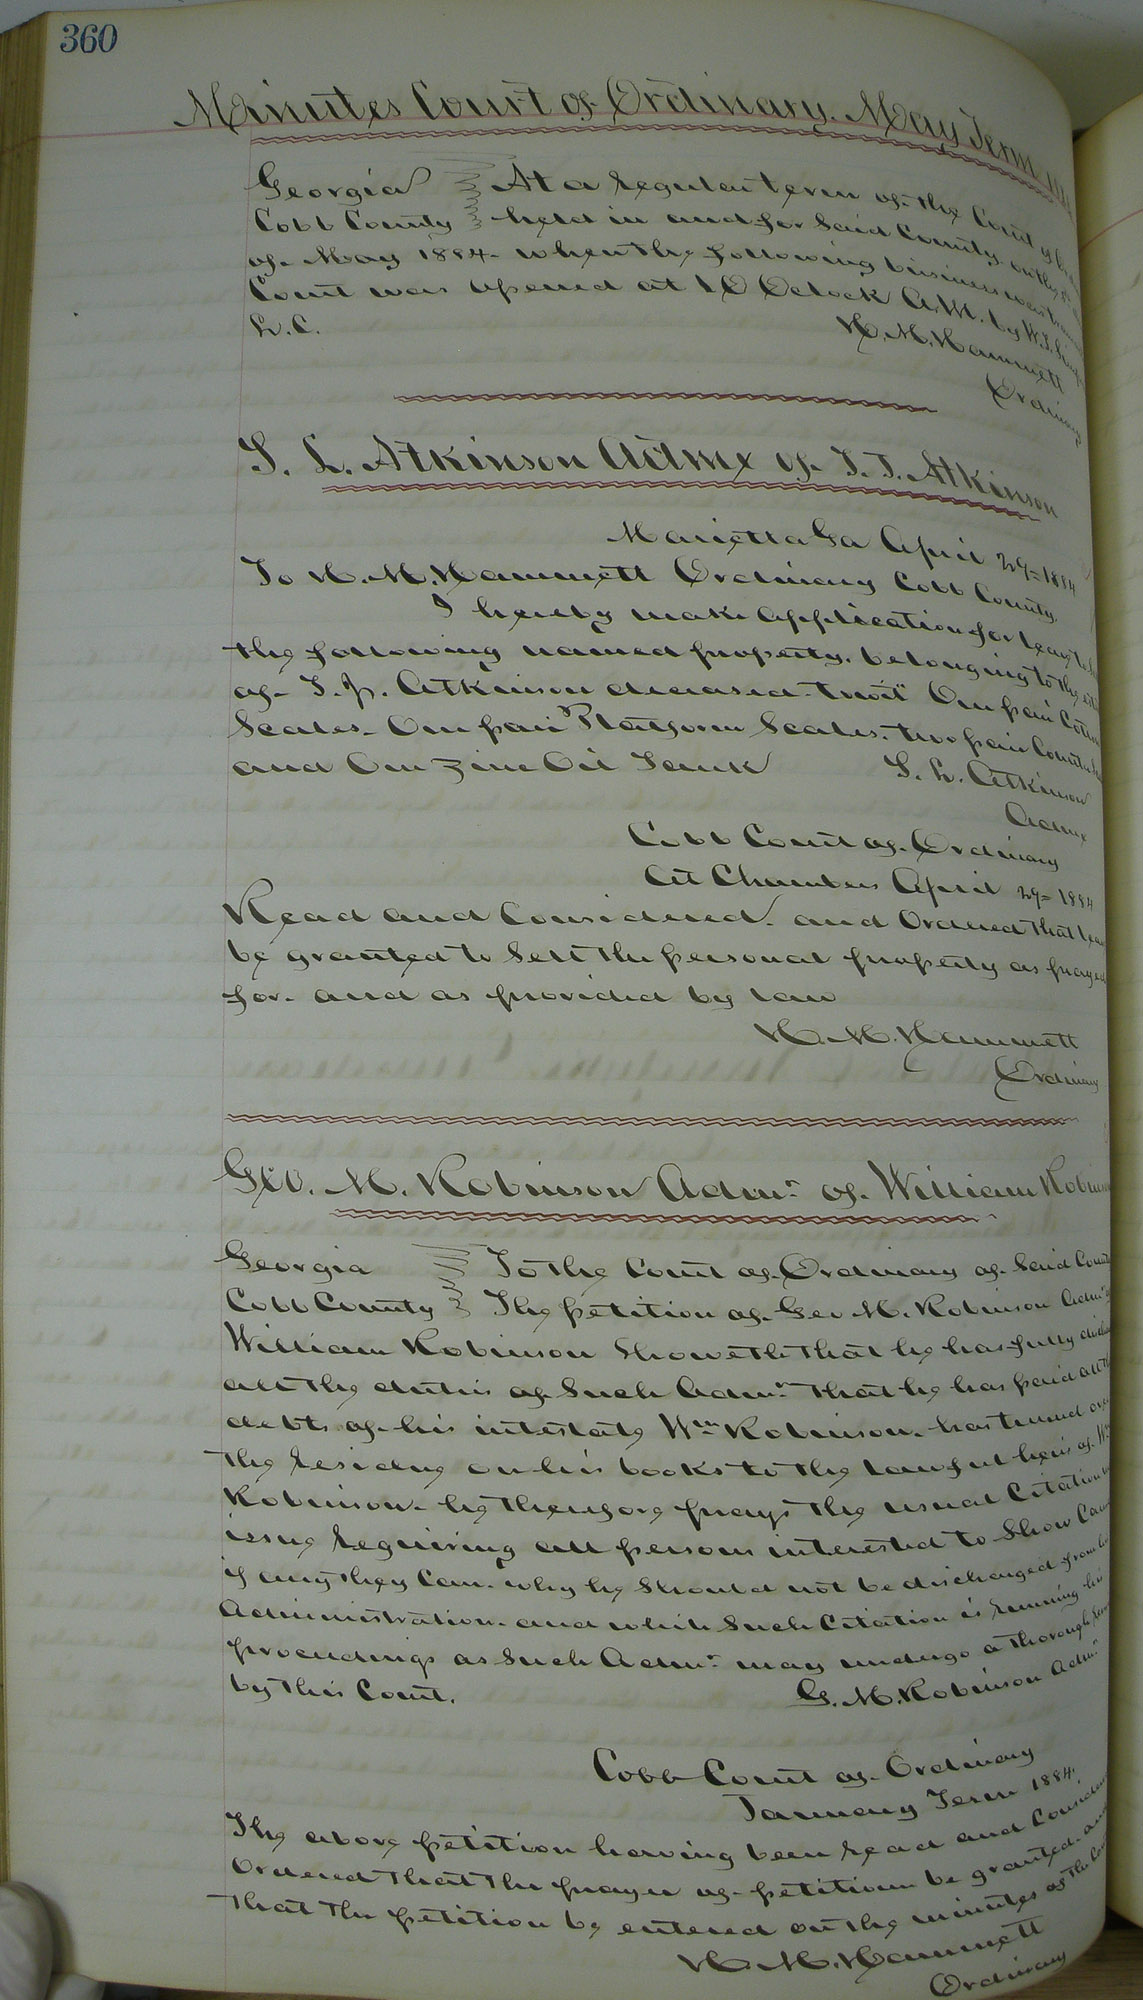 360
Minutes Court of Ordinary. May Term
Georgia At a regular term of the Court of
Cobb County held in and for said County, on the
of May 1884. when the following business was
Court was opened at 10 Oclock A.M. by W.J.
L.C. H. M. Hammett
Ordinary
S. L. Atkinson Admx of T. J. Atkinson
Marietta Ga April 29= 1884
To H. M. Hammett Ordinary Cobb County,
I hereby make application for leave to
the following named property, belonging to the
of T. J. Atkinson deceased towit One pair
Scales. One pair Platform Scales. two pair Counter
and One Zinc Oil Tank S. L. Atkinson
Admx
Cobb Court of Ordinary
At Chambers April 29= 1884
Read and Considered. and Ordered that leave
be granted to Sell the personal property as prayed
for. and as provided by law
H. M. Hammett
Ordinary
Geo. M. Robinson Admr. of William Robinson
Georgia To the Court of Ordinary of Said County
Cobb County The petition of Geo M. Robinson Admr of
William Robinson Showeth that he has fully
all the duties of Such Admr. that he has paid all the
debts of his intestate Wm Robinson. has turned over
the residue on his books to the lawful heirs of Wm
Robinson. he therefore prays the usual Citation
issue requiring all persons interested to Show Cause
if any they Can. why he Should not be discharged from his
Administration. and while Such Citation is running his
proceedings as Such Admr. may undergo a thorough
by this Court. G. M. Robinson Admr.
Cobb Court of Ordinary
January Term 1884.
The above petition having been read and Considered
Ordered that the prayer of petitioner be granted. and
that the petition be entered on the minutes of the Court
H. M. Hammett
Ordinary